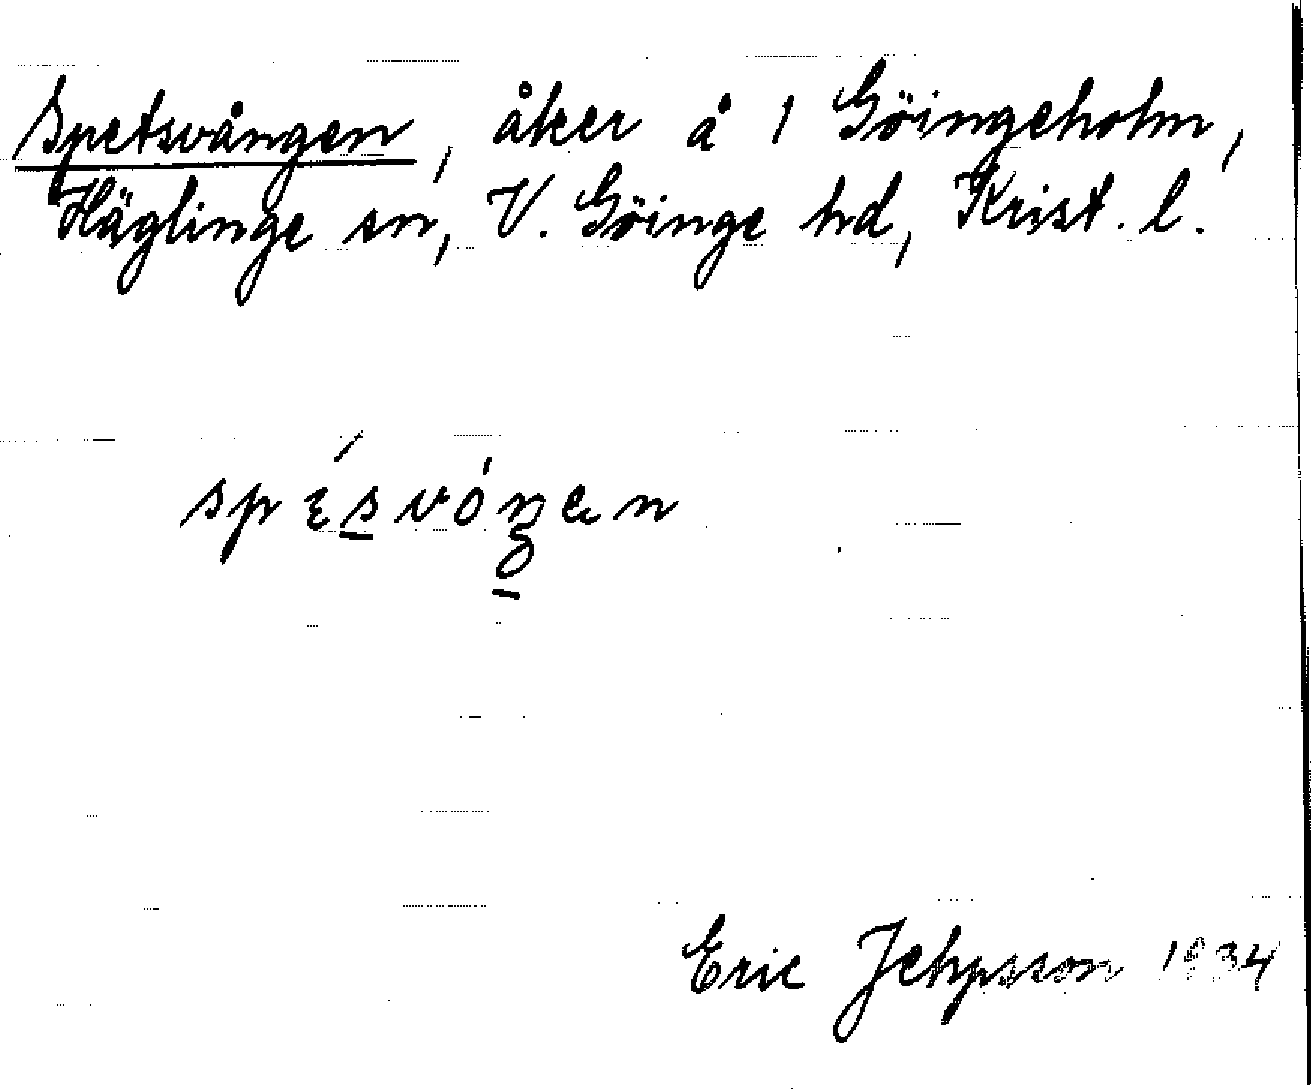 Spetsvången, åker å 1 Göingeholm,
Häglinge sn, V. Göinge hd, Krist. l.
Eric Jehpsson 1934